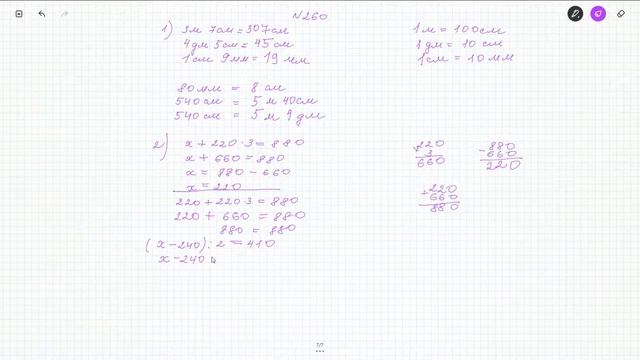 N260
1) 3м 7см = 307см
4дм 5см = 45см
1см 9мм = 19 мм
1м = 100см
1дм = 10 см
1см = 10 мм
80мм = 8 см
540см = 5 м 40см
540см = 5 м 4 дм
2) x + 220 · 3 = 880
x + 660 = 880
x = 880 - 660
x = 220
220 + 220 · 3 = 880
220 + 660 = 880
880 = 880
(x - 240) : 2 = 410
x - 240
220
3
660
- 880
660
220
+ 220
660
880
7/7